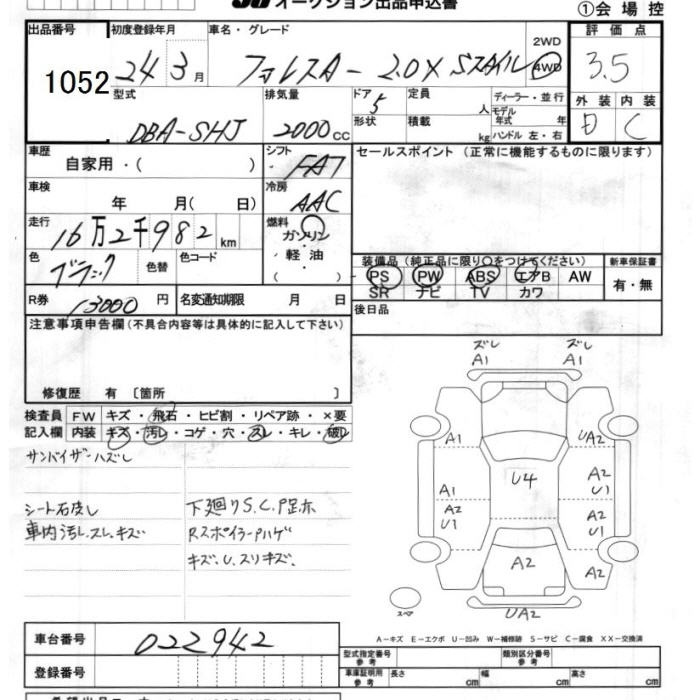 オークション出品申込書
①会場控
出品番号
1052
初度登録年月
24 3月
車名・グレード
フォレスター 2.0X Sスタイル
2WD
4WD
評価点
3.5
外装 内装
D C
型式
DBA-SHJ
排気量
2000cc
ドア 5
形状
定員 人
積載 kg
ディーラー・並行
モデル年式 年
ハンドル 左・右
車歴
自家用・( )
シフト
FAT
車検
年 月( 日)
冷房
AAC
走行
16万2千982km
燃料
ガソリン・軽油
( )
色
ブラック
色替
色コード
R券
13000円
名変通知期限 月 日
セールスポイント(正常に機能するものに限ります)
装備品(純正品に限り○をつけてください)
PS PW ABS エアB AW
SR ナビ TV カワ
新車保証書
有・無
後日品
注意事項申告欄(不具合内容等は具体的に記入して下さい)
修復歴 有〔箇所 〕
検査員記入欄
FW キズ・飛石・ヒビ割・リペア跡・×要
内装 キズ・汚レ・コゲ・穴・スレ・キレ・破レ
サンバイザーハズし
シート石皮し
車内汚し.スレ.キズ
下廻りS.C.P足ホ
RスポイラーPハゲ
キズ.U.スリキズ.
ズレ ズレ
A1 A1
A1 UA2
U4
A1
A2
U1
A2
U1
A2
U1
A2
A2
A2
スペア
UA2
A-キズ E-エクボ U-凹み W-補修跡 S-サビ C-腐食 XX-交換済
車台番号
022942
登録番号
型式指定番号
参考
類別区分番号
参考
車庫証明用
参考
長さ cm
幅 cm
高さ cm